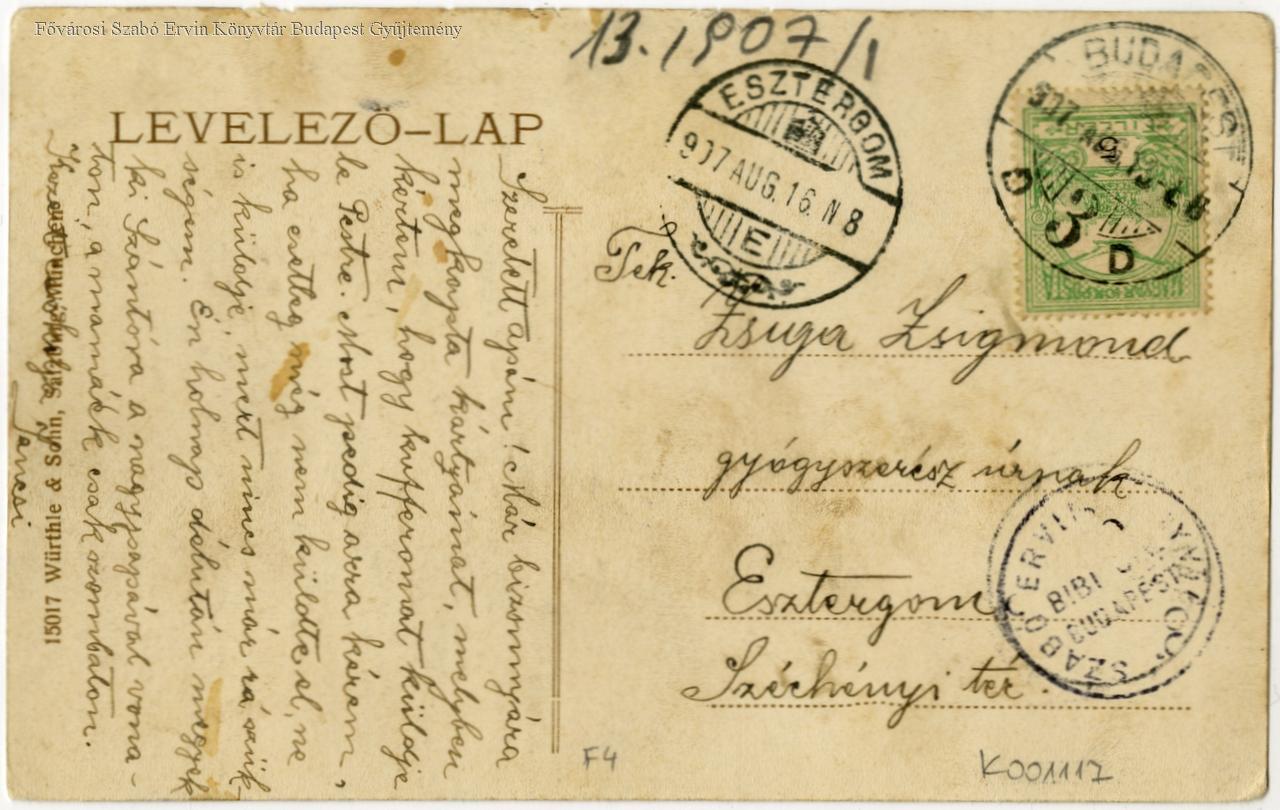 Fővárosi Szabó Ervin Könyvtár Budapest Gyűjtemény
13. 1907/1
LEVELEZŐ-LAP
ESZTERGOM
907 AUG. 16. N 8
E
BUDAPEST
907 AUG
D
D
3
MAGYAR KIR. POSTA
Szeretett apám! Már bizonnyára
megkapta kártyámat, melyben
kértem, hogy kufferomat küldje
le Pestre. Most pedig arra kérem,
ha esetleg még nem küldte el, ne
is küldje, mert nincs már rá szük
ségem. Én holnap délután megyek
ki Szántóra a nagypapával vona-
ton, a mamáék csak szombaton.
Jancsi
15017 Würthle & Sohn, Salzburg, München
Tek.
Zsuga Zsigmond
gyógyszerész úrnak
Esztergom
Széchényi tér.
SZABÓ ERVIN
BUDAPEST
F4
K001117